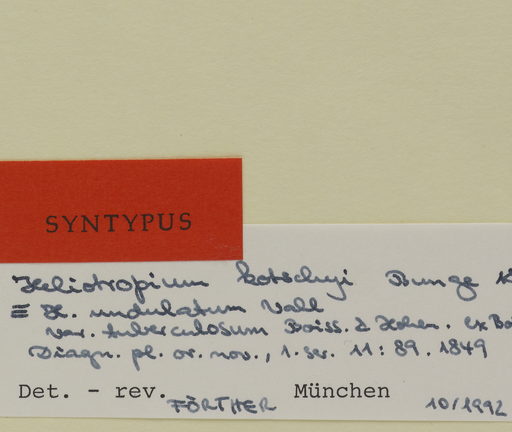 SYNTYPUS
Heliotropium kotschyi Bunge
≡ H. undulatum Vahl
var. tuberculosum Boiss. & Hohen. ex
Diagn. pl. or. nov., 1. ser. 11: 89. 1849
Det. - rev. FÖRTHER München 10/1992